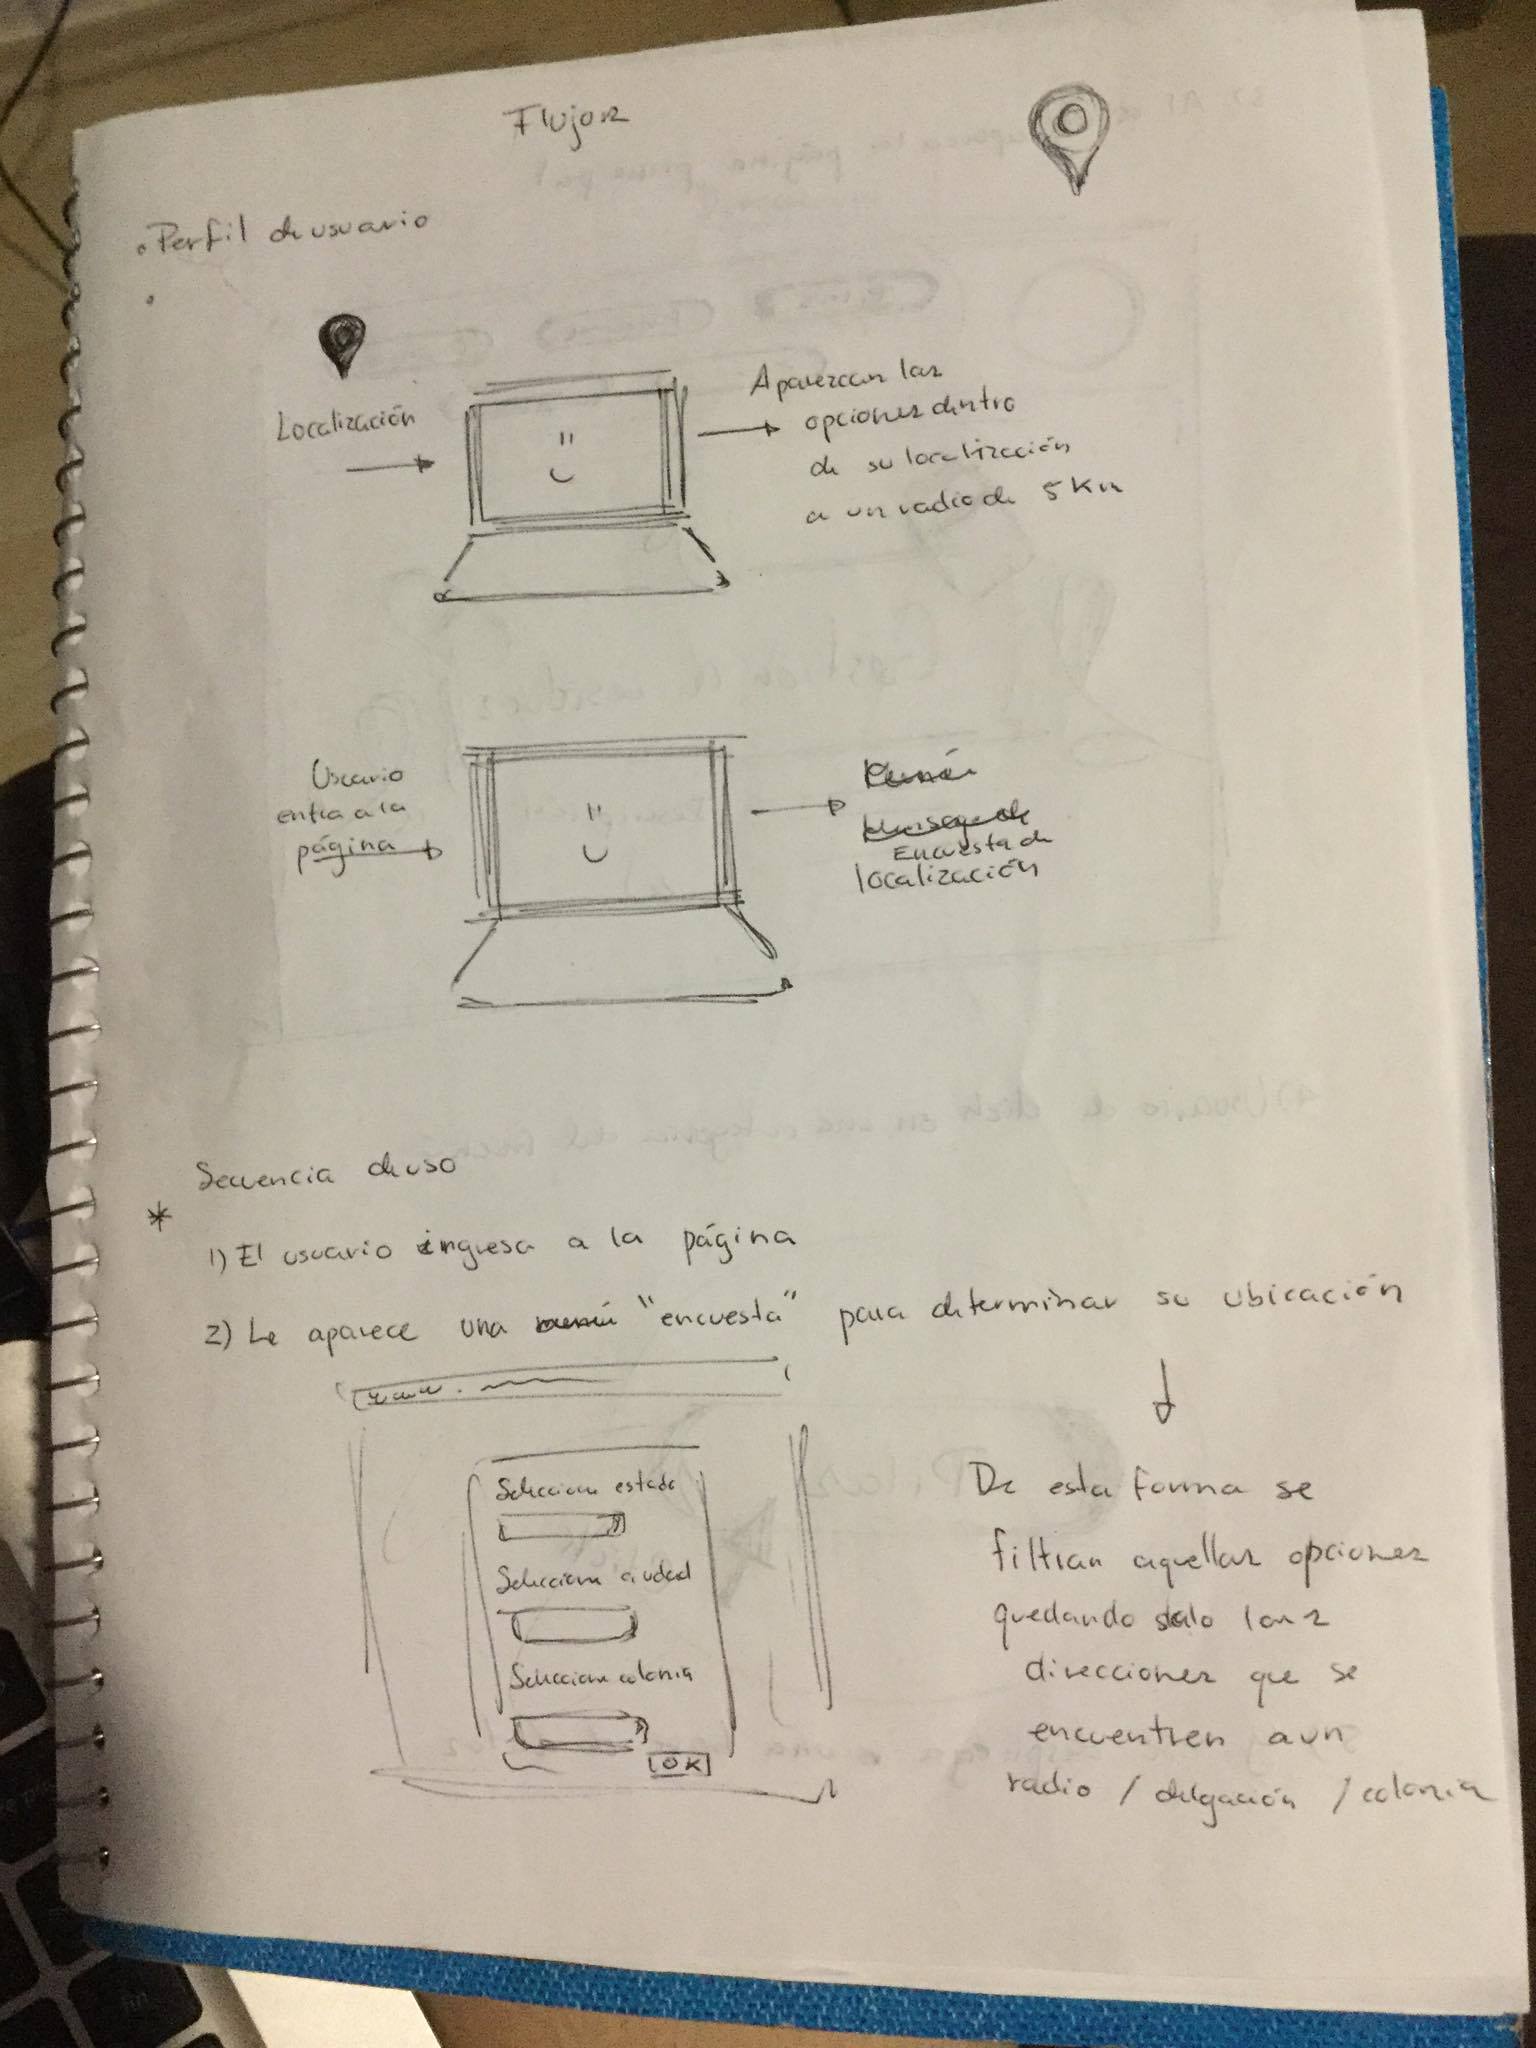 Flujos
Perfil de usuario
Localización
Aparezcan las
opciones dentro
de su localización
a un radio de 5 Km
Usuario
entra a la
página
Encuesta de
localización
Secuencia de uso
* 1) El usuario ingresa a la página
2) Le aparece una menú "encuesta" para determinar su ubicación
www.
Seleccione estado
Seleccione ciudad
Seleccione colonia
OK
De esta forma se
filtran aquellas opciones
quedando solo las
direcciones que se
encuentren a un
radio / delgación / colonia